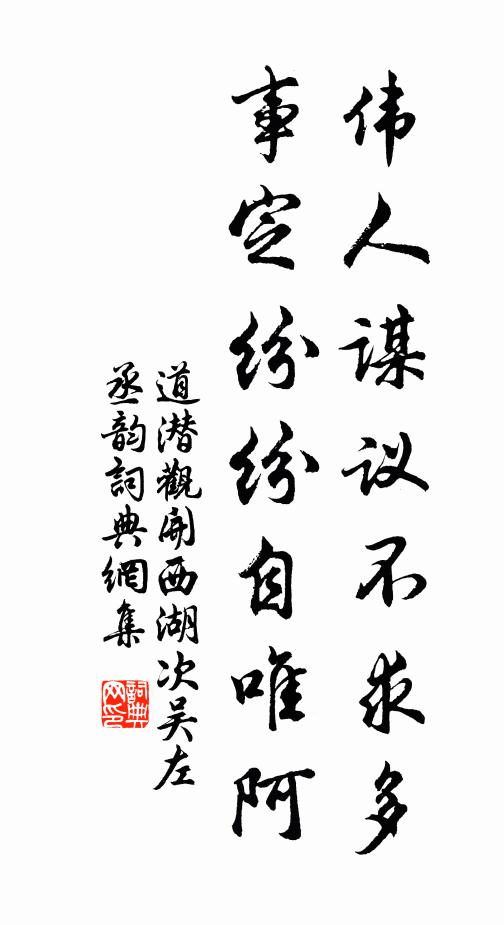 伟人谋议不求多
事定纷纷自唯阿
道潜觀開西湖次吴左
丞韵詞典網集
詞典网印